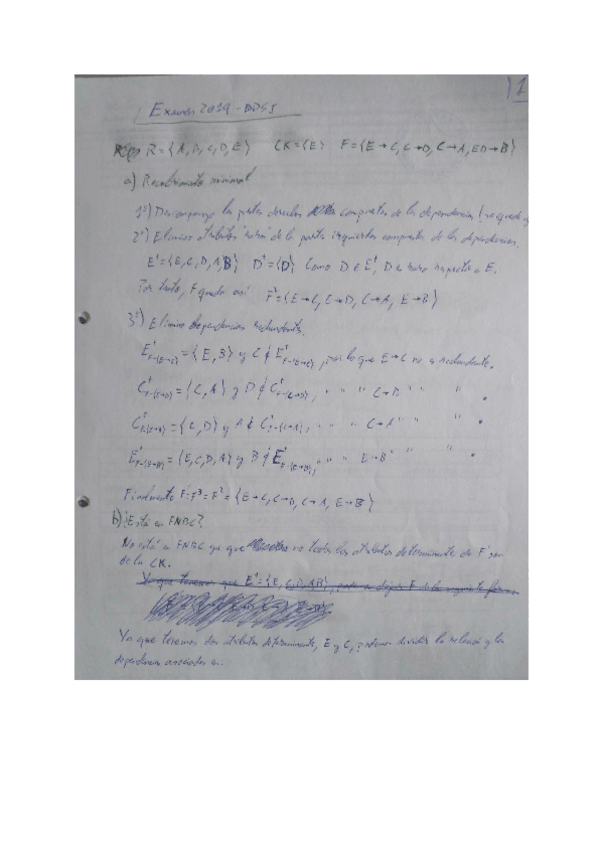 1
Examen 2019 - DDSI
R = {A, B, C, D, E} CK = {E} F = {E→C, C→D, C→A, ED→B}
a) Recubrimiento minimal
1º) Descompongo las partes derechas compuestas de las dependencias
2º) Elimino atributos "raros" de la partes izquierdas compuestas de las dependencias.
E⁺ = {E, C, D, A, B} D⁺ = {D} Como D ∈ E⁺, D es raro respecto a E.
Por tanto, F queda así F² = {E→C, C→D, C→A, E→B}
3º) Elimino dependencias redundantes.
E⁺F-{E→C} = {E, B} y C ∉ E⁺F-{E→C}, por lo que E→C no es redundante.
C⁺F-{C→D} = {C, A} y D ∉ C⁺F-{C→D}, " " " C→D " " " .
C⁺F-{C→A} = {C, D} y A ∉ C⁺F-{C→A}, " " " C→A " " " .
E⁺F-{E→B} = {E, C, D, A} y B ∉ E⁺F-{E→B}, " " " E→B " " " .
Finalmente F = F³ = F² = {E→C, C→D, C→A, E→B}
b) ¿Está en FNBC?
No está en FNBC ya que no todos los atributos determinante de F son
de la CK.
Ya que tenemos que E⁺ = {E, C, D, A, B}, F de la siguiente forma
Ya que tenemos dos atributos determinante, E y C, podemos dividir la relación y las
dependencias asociadas en.